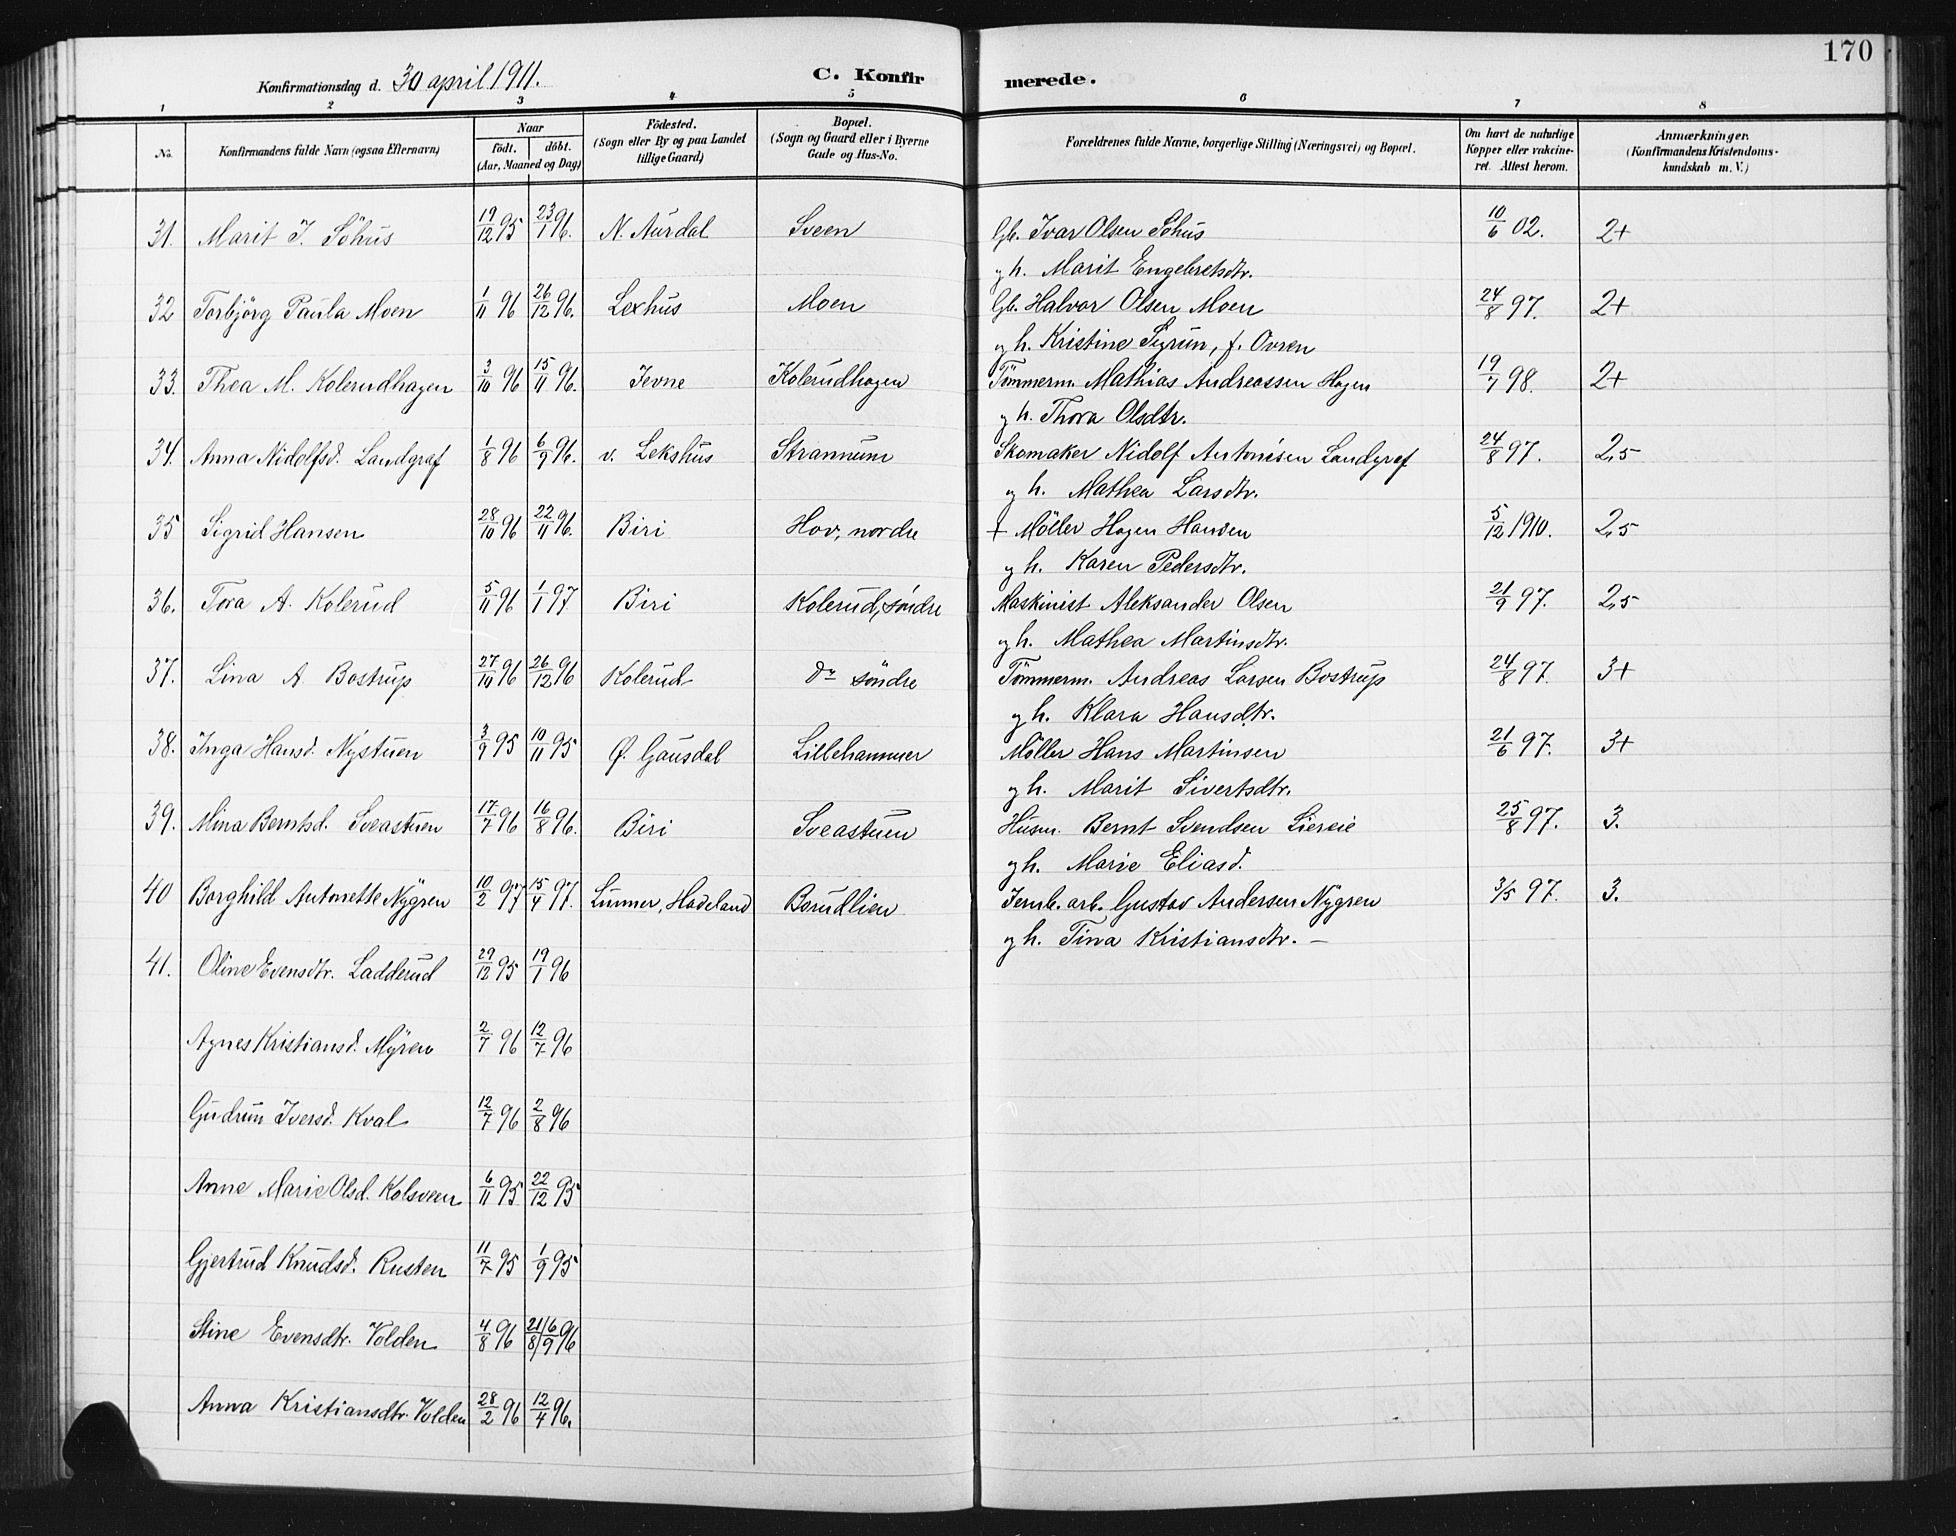 170
Konfirmationsdag d. 30 april 1911. C. Konfirmerede.
1 2 3 4 5 6 7 8
No. Konfirmandens fulde Navn (ogsaa Efternavn) Naar födt. döbt. (Aar, Maaned og Dag) Födested. (Sogn eller By og paa Landet tillige Gaard) Bopæl. (Sogn og Gaard eller i Byerne Gade og Hus-No. Forældrenes fulde Navne, borgerlige Stilling (Næringsvei) og Bopæl. Om havt de naturlige Kopper eller vakcineret. Attest herom. Anmærkninger. (Konfirmandens Kristendomskundskab m. V.)
31. Marit I. Söhus 19/12 95 23/1 96. N. Aurdal Sveen Gb. Ivar Olsen Söhus 10/6 02. 2+
og h. Marit Engebretsdtr.
32 Torbjörg Paula Moen 1/11 96 26/12 96. Lexhus Moen Gb. Halvor Olsen Moen 24/8 97. 2+
og h. Kristine Sigrun, f. Owren
33. Thea M. Kolerudhagen 3/10 96 15/11 96. Jevne Kolerudhagen Tömmerm. Mathias Andreassen Hagen 19/7 98. 2+
og h. Thora Olsdtr.
34. Anna Nidolfsd. Landgraf 1/8 96 6/9 96. v. Lekshus Strannum Skomaker Nidolf Antonisen Landgraf 24/8 97. 2,5
og h. Mathea Larsdtr.
35 Sigrid Hansen 28/10 96 22/11 96. Biri Hov, nordre + Möller Hagen Hansen 5/12 1910. 2,5
og h. Karen Pedersdtr.
36. Tora A. Kolerud 5/11 96 1/1 97 Biri Kolerud, söndre Maskinist Aleksander Olsen 21/9 97. 2,5
og h. Mathea Martinsdtr.
37. Lina A Bostrup 27/10 96 26/12 96 Kolerud do söndre Tömmerm. Andreas Larsen Bostrup 24/8 97. 3+
og h. Klara Hansdtr.
38. Inga Hansd. Nystuen 3/9 95 10/11 95 Ø. Gausdal Lillehammer Möller Hans Martinsen 21/6 97. 3+
og h. Marit Sivertsdtr.
39. Mina Berntsd. Sveastuen 17/7 96 16/8 96. Biri Sveastuen Husm. Bernt Svendsen Liereie 25/8 97. 3.
og h. Marie Eliasd.
40 Borghild Antonette Nygren 10/2 97 15/4 97. Lunner, Hadeland Bsrudlien Jernb. arb. Gustav Andersen Nygren 3/5 97. 3.
og h. Tina Kristiansdtr. —
41. Oline Evensdtr. Ladderud 29/12 95 19/1 96
Agnes Kristiansd. Myren 2/7 96 12/7 96
Gudrun Iversd. Kval 12/7 96 2/8 96
Anne Marie Olsd. Kolsveen 6/11 95 22/12 95
Gjertrud Knudsd. Rusten 11/7 95 1/9 95
Stine Evensdtr. Volden 4/8 96 21/8 6/9 96
Anna Kristiansdtr. Volden 28/2 96 12/4 96.